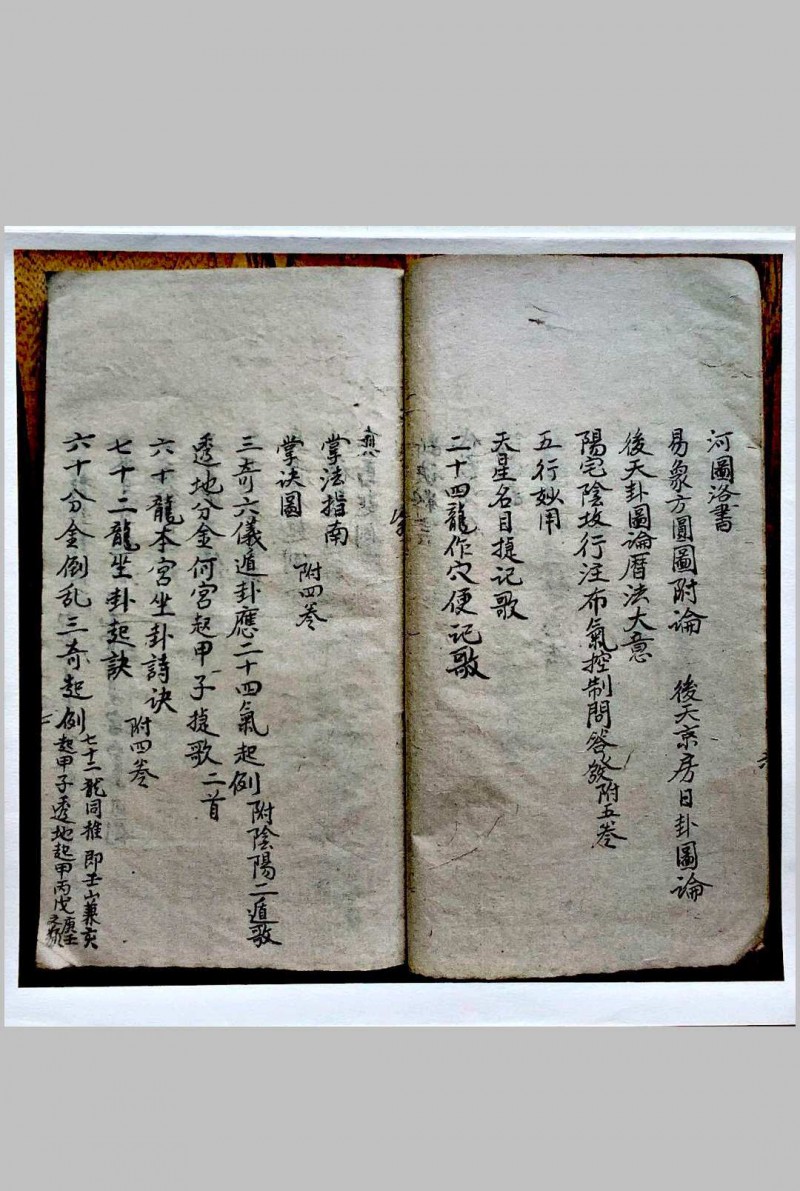 河圖洛書
易象方圓圖附論 後天京房日卦圖論
後天卦圖論曆法大意
陽宅陰坟行注布氣控制問答發附五巻
五行妙用
天星名目捷记歌
二十四龍作穴便记歌
掌法指南
附四巻
掌诀圖
三奇六儀遁卦應二十四氣起例附陰陽二遁歌
透地分金何宮起甲子捷歌二首
六十龍本宮坐卦詩诀
附四巻
七十二龍坐卦起訣
六十分金倒乱三奇起例
七十二龍同推即壬山兼亥
起甲子透地起甲丙戊庚壬